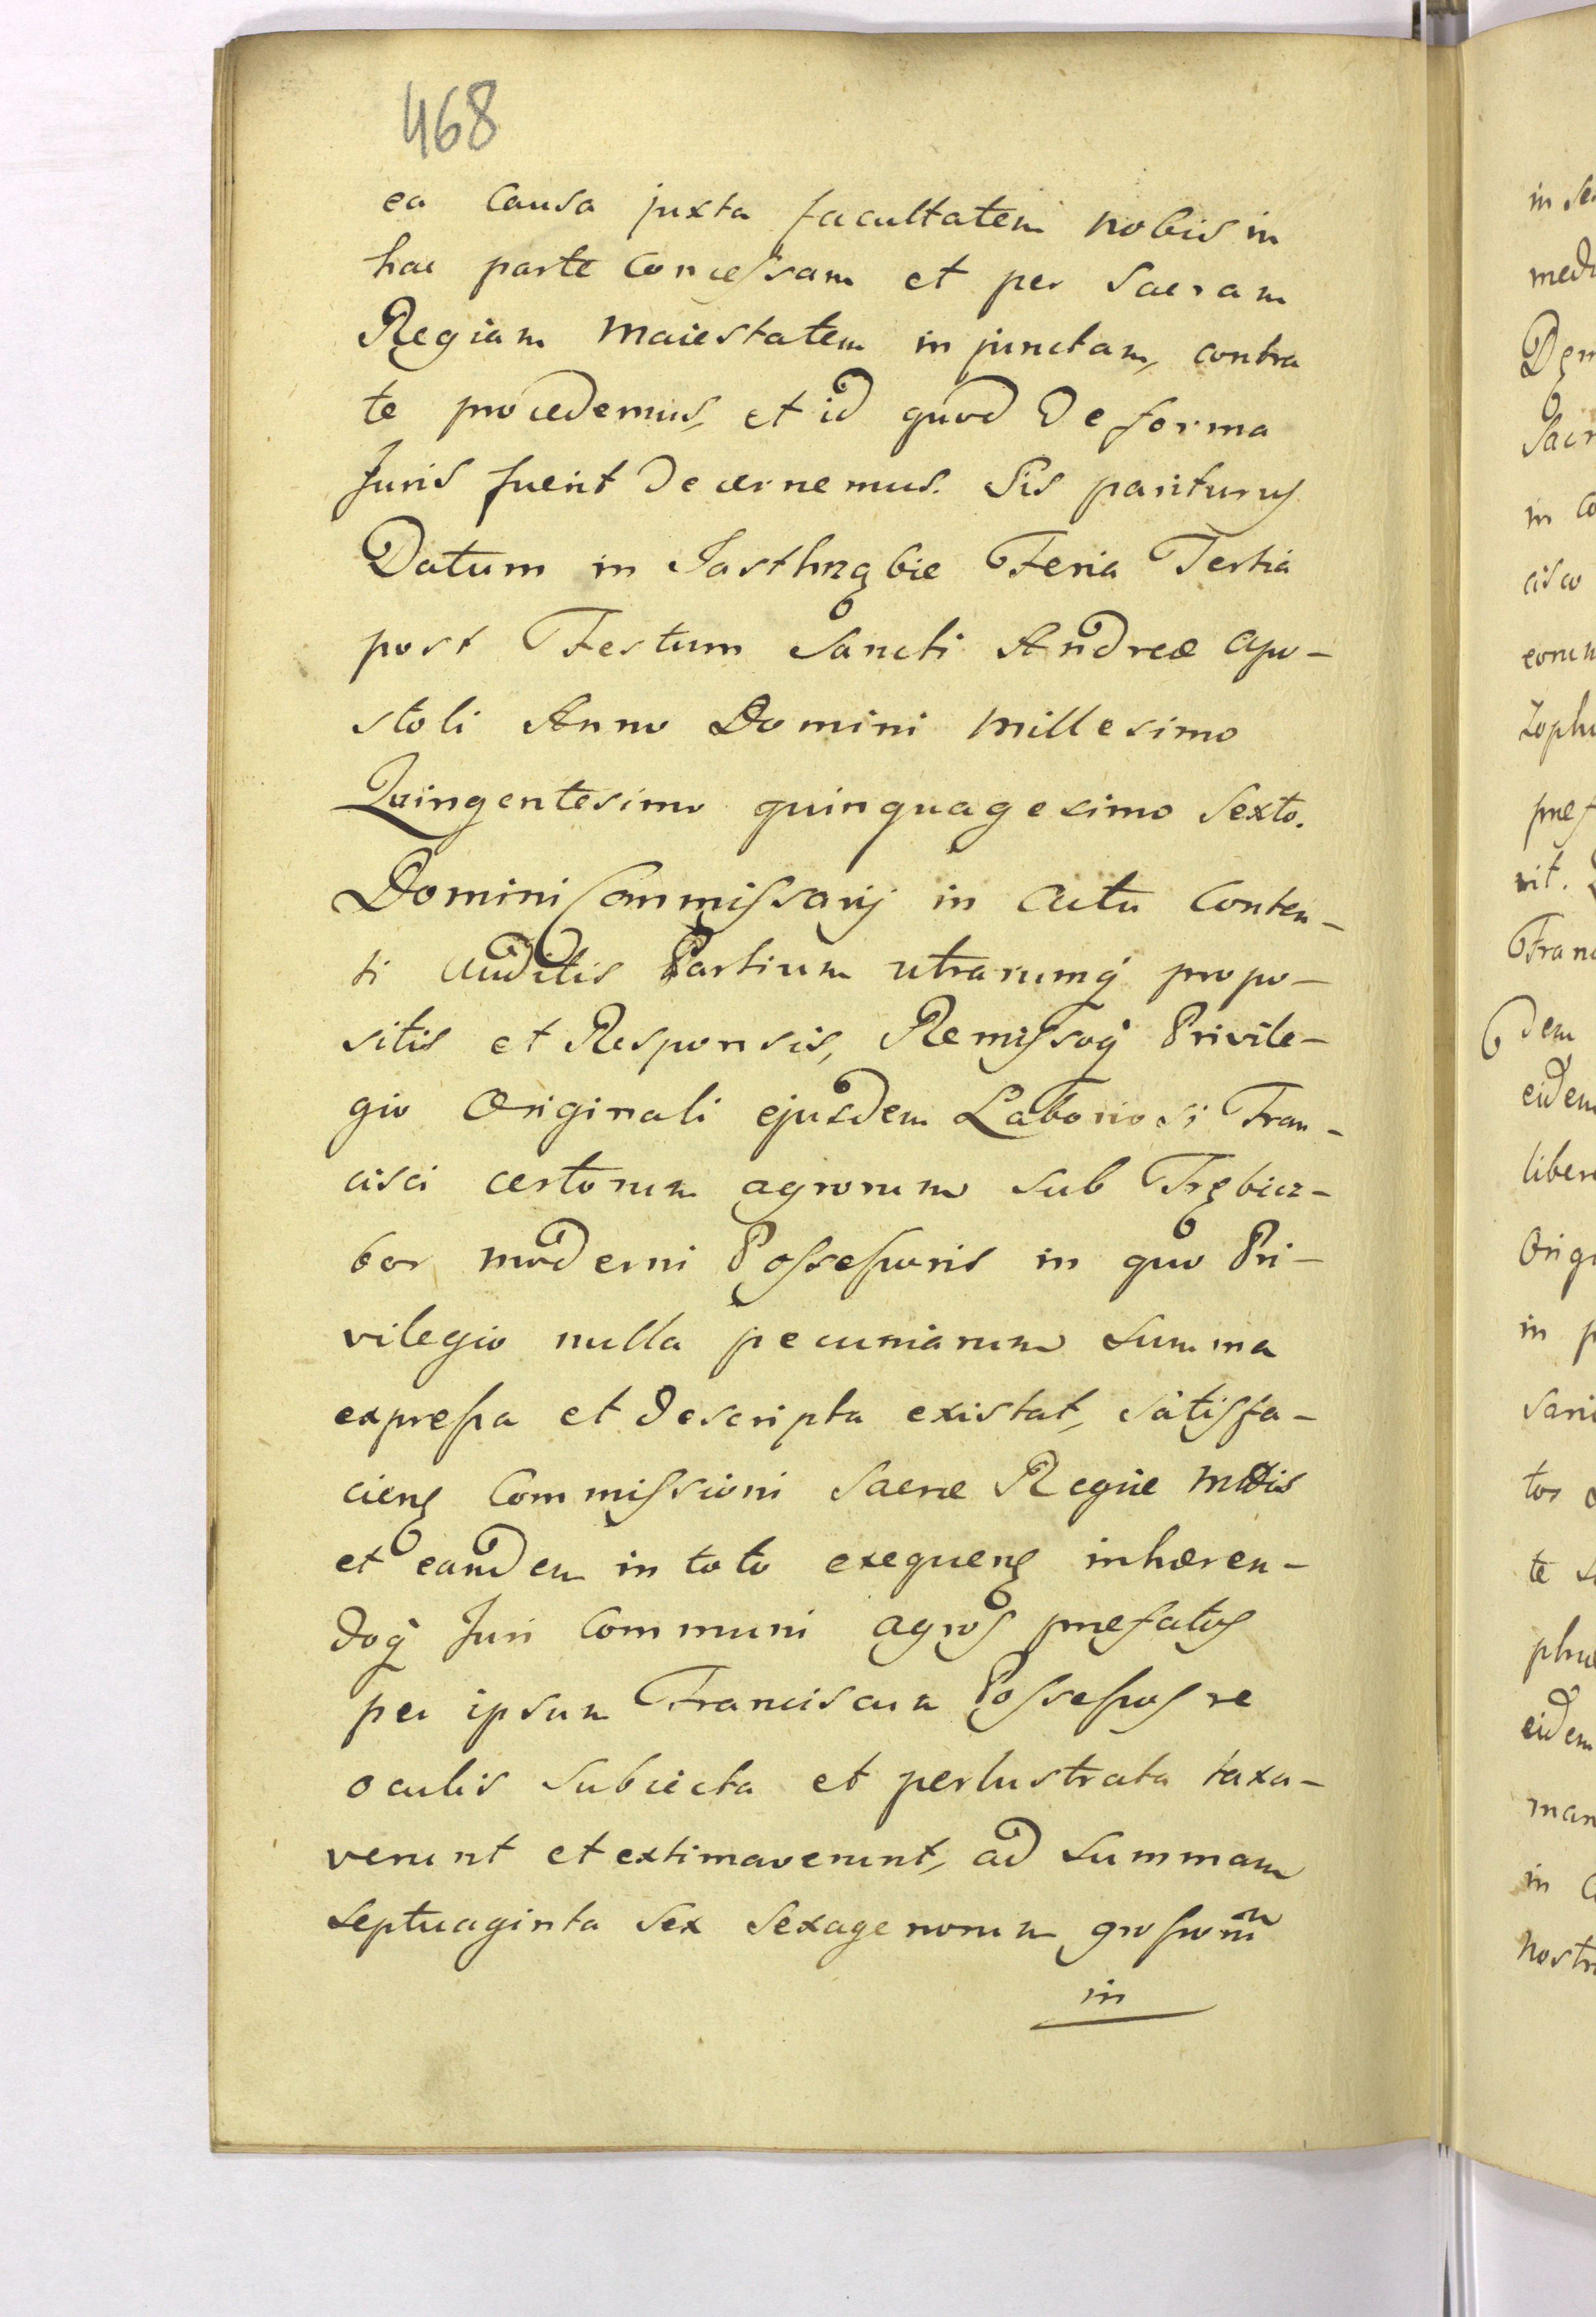 468
ea Causa juxta facultatem nobis in
hac parte Concessam et per Sacram
Regiam Maiestatem injunctam, contra
te procedemus, et id quod De forma
Juris fuerit Decernemus. Sis pariturus
Datum in Jasthrząbie Feria Tertia
post Festum Sancti Andreæ Apo-
stoli Anno Domini Millesimo
Quingentesimo quinquagesimo Sexto.
Domini Commissarij in Actu Conten-
ti Auditis Partium utrarumq́ propo-
sitis et Responsis, Remissoq́ Privile-
gio Originali ejusdem Laboriosi Fran-
cisci certorum agrorum sub Trębicz-
bor moderni Possessoris in quo Pri-
vilegio nulla pecuniarum summa
expressa et descripta existat, satisfa-
ciens Commissioni Sacræ Regiæ Mttis
et eandem in toto exequens inhæren-
doq́ Juri Communi agros præfatos
per ipsum Franciscum Possessos re
oculis Subiecta et perlustrata taxa-
verunt et extimaverunt, ad summam
Septuaginta Sex Sexagenorum grossorum
in
in
Sacr
in
cisco
eorum
rit.
dem
eidem
in
te
eidem
in